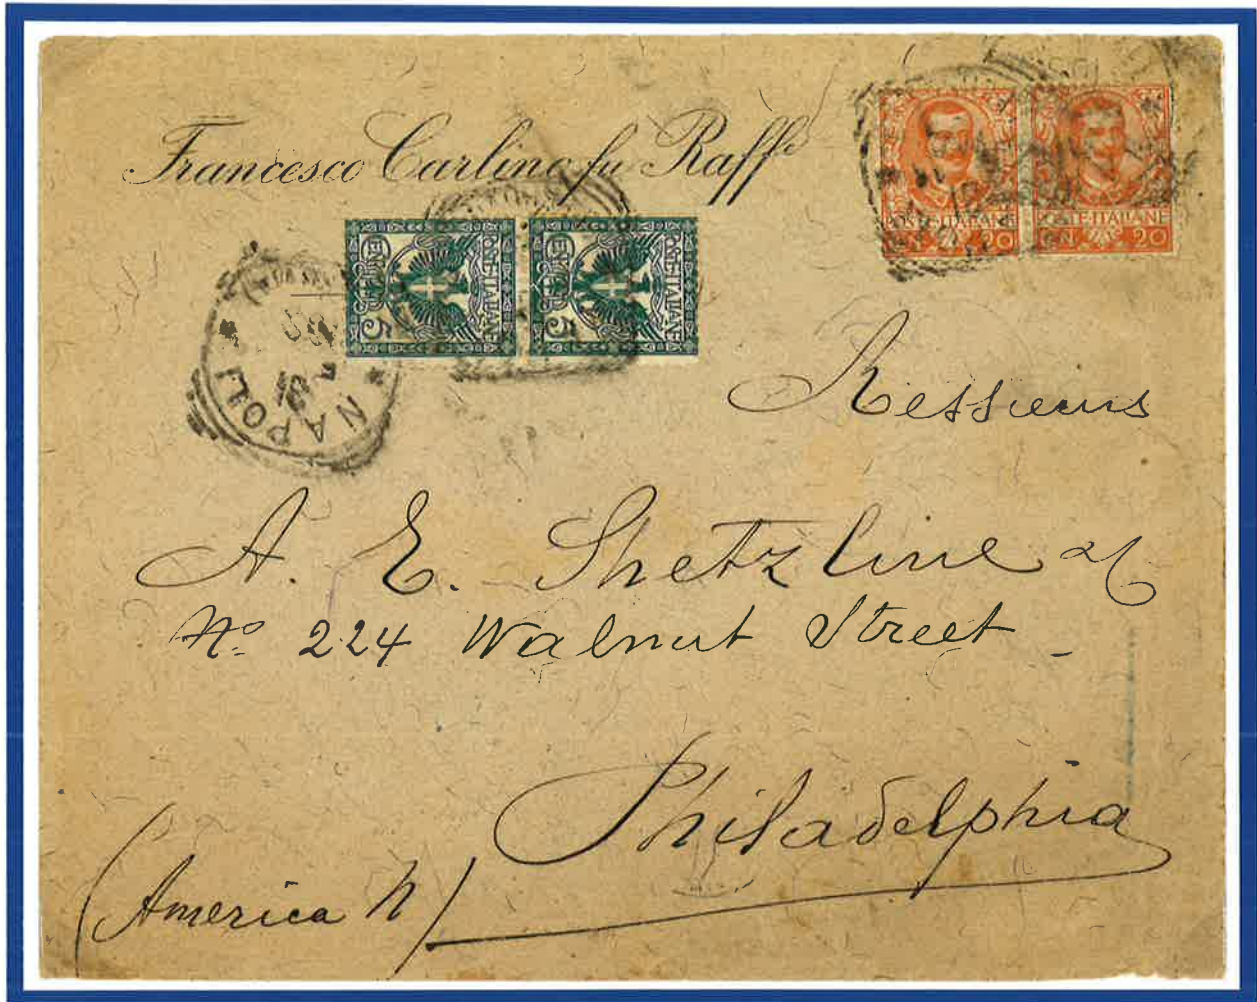 Francesco Carlino fu Raffe
POSTE ITALIANE
CEN. 20
POSTE ITALIANE
CEN. 20
POSTE ITALIANE
CENT. 5
POSTE ITALIANE
CENT. 5
NAPOLI
Messieurs
A. E. Shetzline & C
No. 224 Walnut Street -
Philadelphia
(America N)